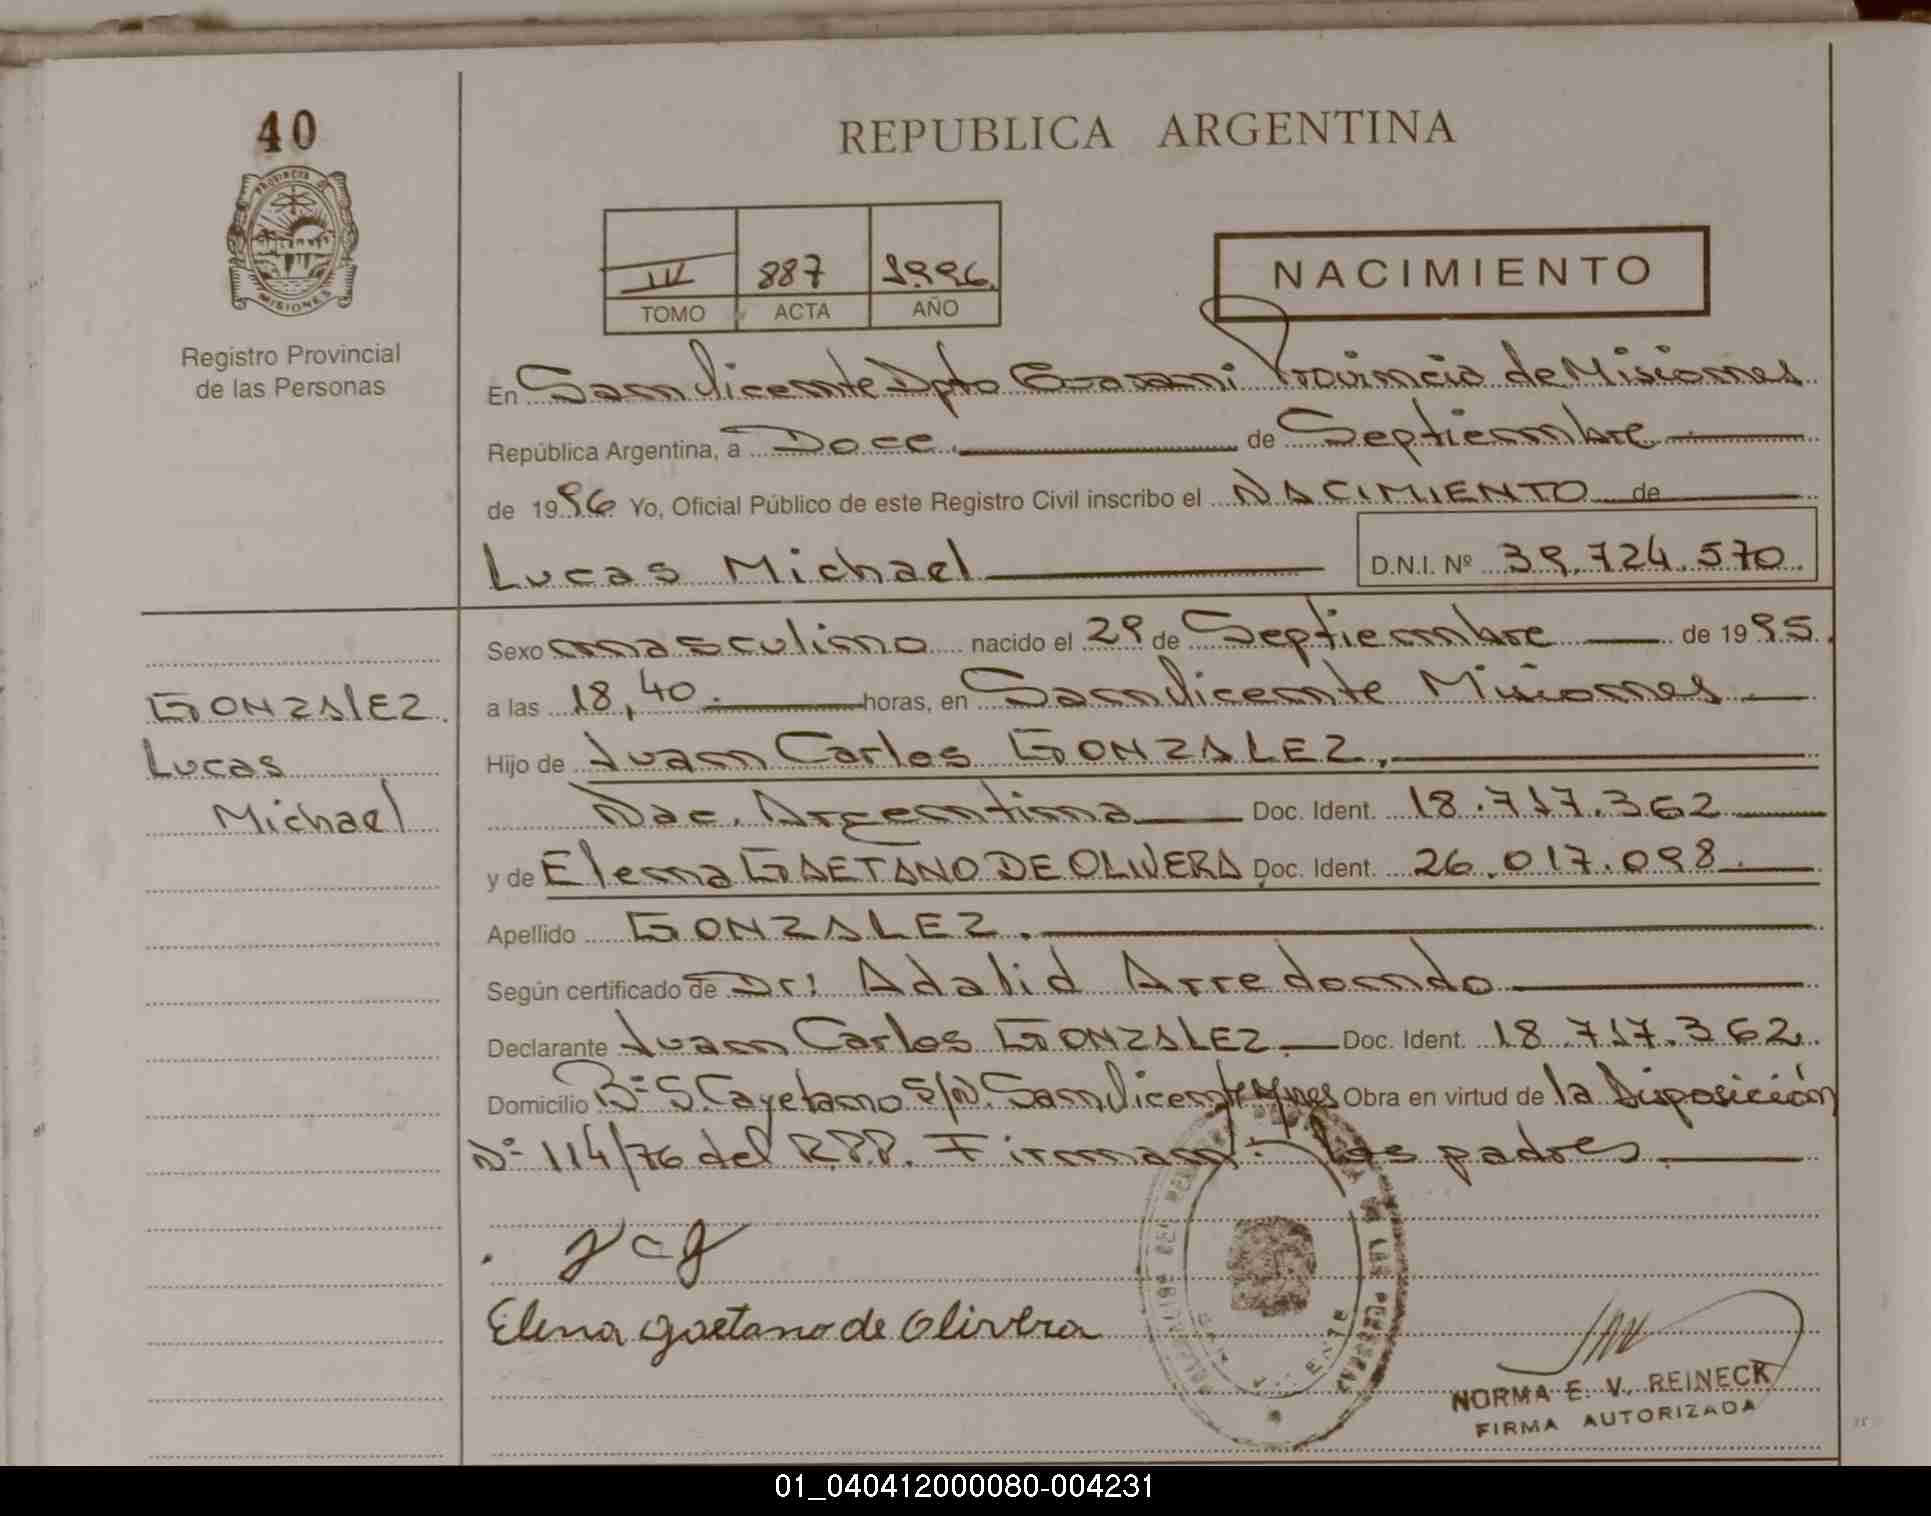 40
REPUBLICA ARGENTINA
PROVINCIA DE
MISIONES
Registro Provincial
de las Personas
IV 887 1996.
TOMO ACTA AÑO
NACIMIENTO
En San Vicente Dpto Guarani Provincia de Misiones
República Argentina, a Doce de Septiembre
de 1996 Yo, Oficial Público de este Registro Civil inscribo el NACIMIENTO de
Lucas Michael D.N.I. Nº 39.724.570.
Sexo masculino nacido el 29 de Septiembre de 1995.
a las 18,40. horas, en San Vicente Misiones
GONZALEZ
Lucas
Michael
Hijo de Juan Carlos GONZALEZ,
Nac. Argentina Doc. Ident. 18.717.362
y de Elena GAETANO DE OLIVERA Doc. Ident. 26.017.098.
Apellido GONZALEZ.
Según certificado de Dr: Adalid Arredondo
Declarante Juan Carlos GONZALEZ. Doc. Ident. 18.717.362.
Domicilio Bº S. Cayetano S/N. San Vicente Mnes Obra en virtud de la Disposición
Nº 114/76 del R.P.P. Firman: los padres.
J C G
Elena gaetano de Olivera
NORMA E. V. REINECK
FIRMA AUTORIZADA
01_040412000080-004231